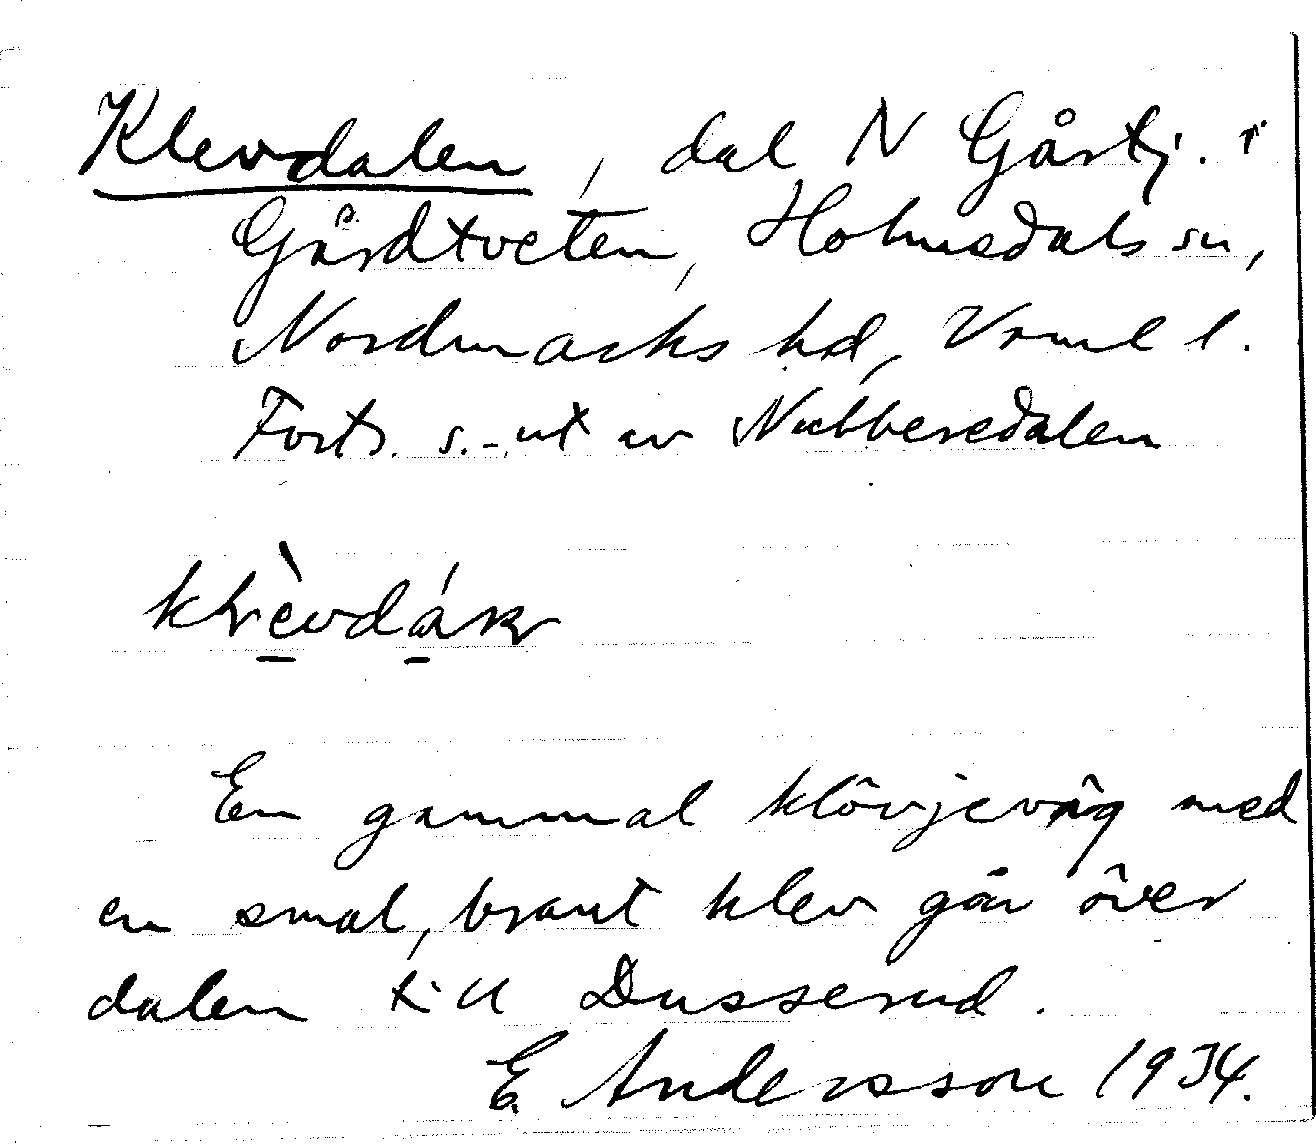 Klevdalen, dal N Gårtj. i
Gårdtveten, Holmedals sn,
Nordmarks hd, Vrml l.
Forts. s.-ut av Nubberedalen
En gammal klövjeväg med
en smal, brant klev går över
dalen till Dusserud.
E. Andersson 1934.